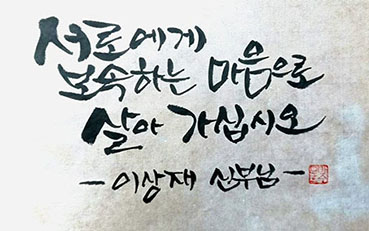 서로에게
보속하는 마음으로
살아 가십시오
- 이상재 신부님 -